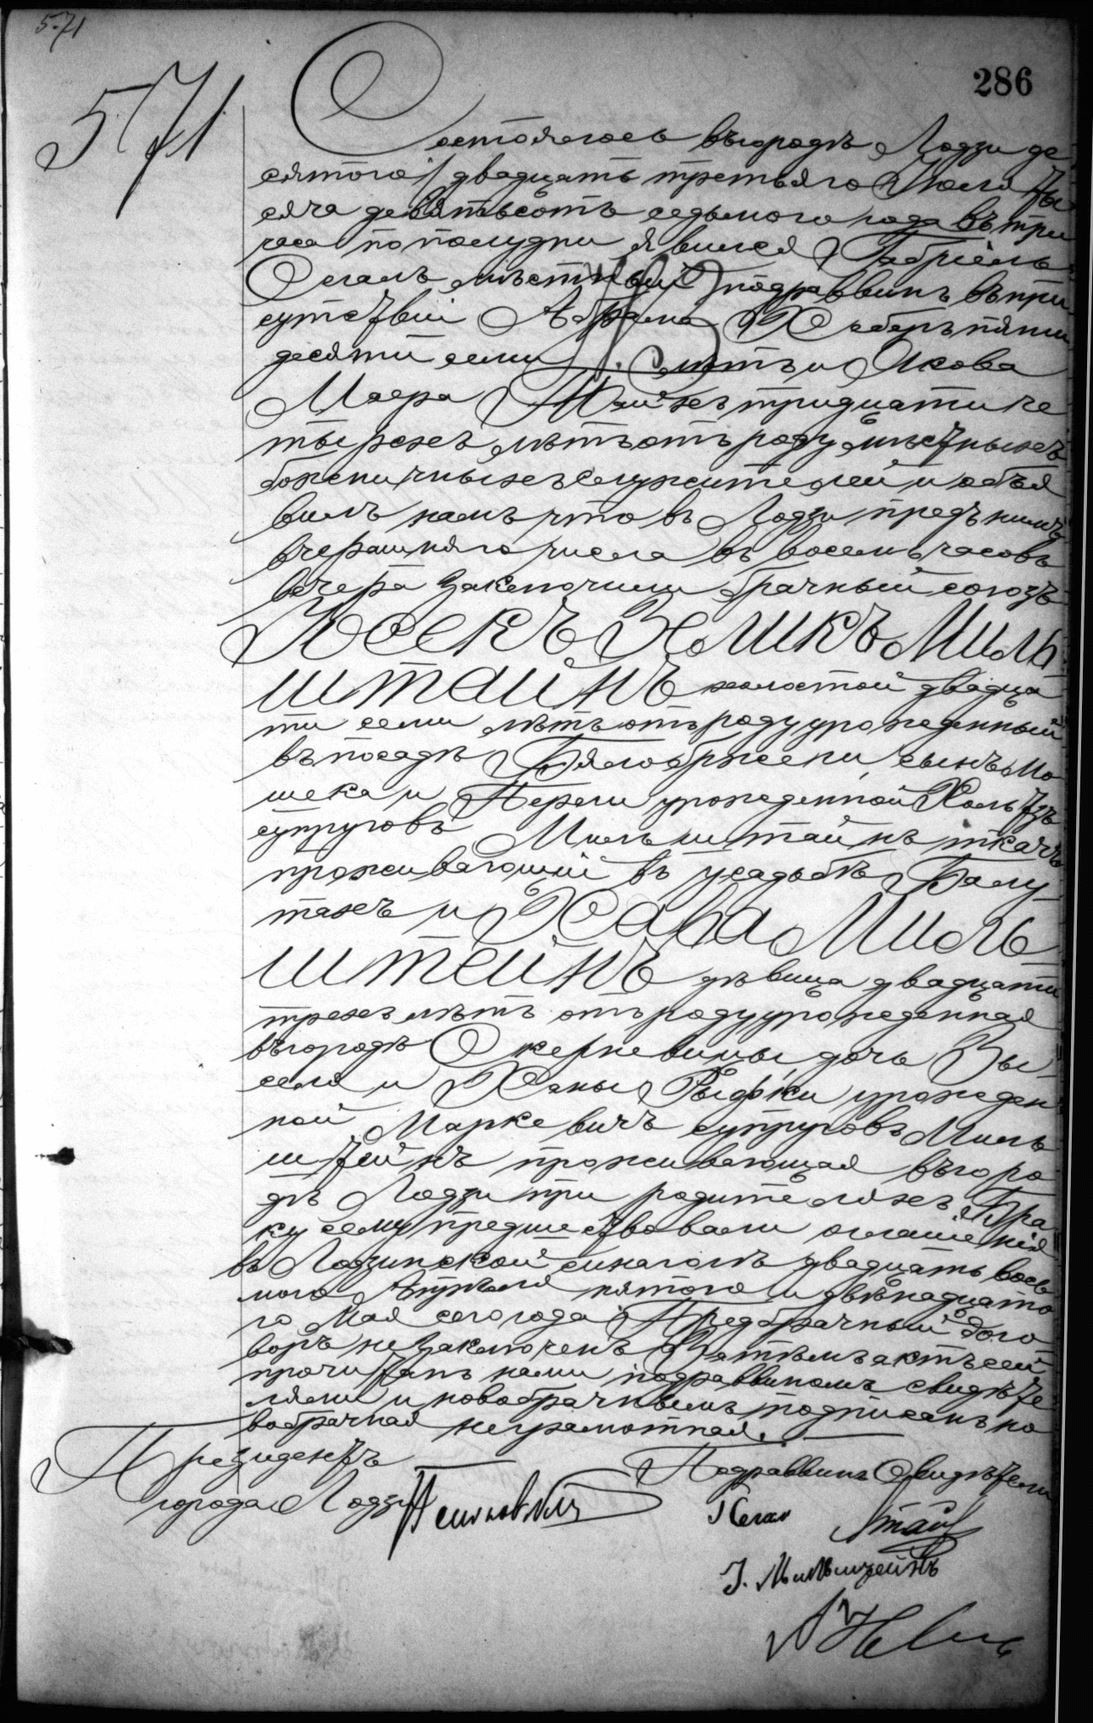 571
571
286
Состоялось въ городѣ Лодзи де
сятого / двадцать третьяго Июля ты
сяча девятьсотъ седьмого года въ три
часа по полудни явился Габріель
Сегалъ мѣстный подраввинъ въ при
сутствіи Абрама пяти
десяти семи лѣтъ и Якова
Маера тридцати че
тырехъ лѣтъ отъ роду мѣстныхъ
божничныхъ служителей и объя
вилъ намъ что въ Лодзи предъ нимъ
вчерашняго числа въ восемь часовъ
вечера заключили брачный союзъ
Іосекъ Зеликъ Миль
штайнъ холостой двадца
ти семи лѣтъ отъ роду урожденный
въ посадѣ Бялобржеги сынъ Мо
шека и Перели урожденной Хольцъ
супруговъ Мильштайнъ ткачъ
проживающій въ усадьбѣ Балу
тахъ и Хава Миль
штейнъ дѣвица двадцати
трехъ лѣтъ отъ роду урожденная
въ городѣ Скерневицы дочь Зы
селя и Ханы Рыфки урожден
ной Маркевичъ супруговъ Миль
штейнъ проживающая въ горо
дѣ Лодзи при родителяхъ. Бра
ку сему предшествовали оглашенія
въ Лодзинской синагогѣ двадцать вось
мого Апрѣля пятого и двѣнадцато
го Мая сего года Предбрачный дого
воръ не заключенъ Затѣмъ актъ сей
прочитанъ нами подраввиномъ свидѣте
лями и новобрачнымъ подписанъ но
вобрачная неграмотная.
Президентъ
города Лодзи
Подраввинъ Свидѣтели
І. Мильштейнъ